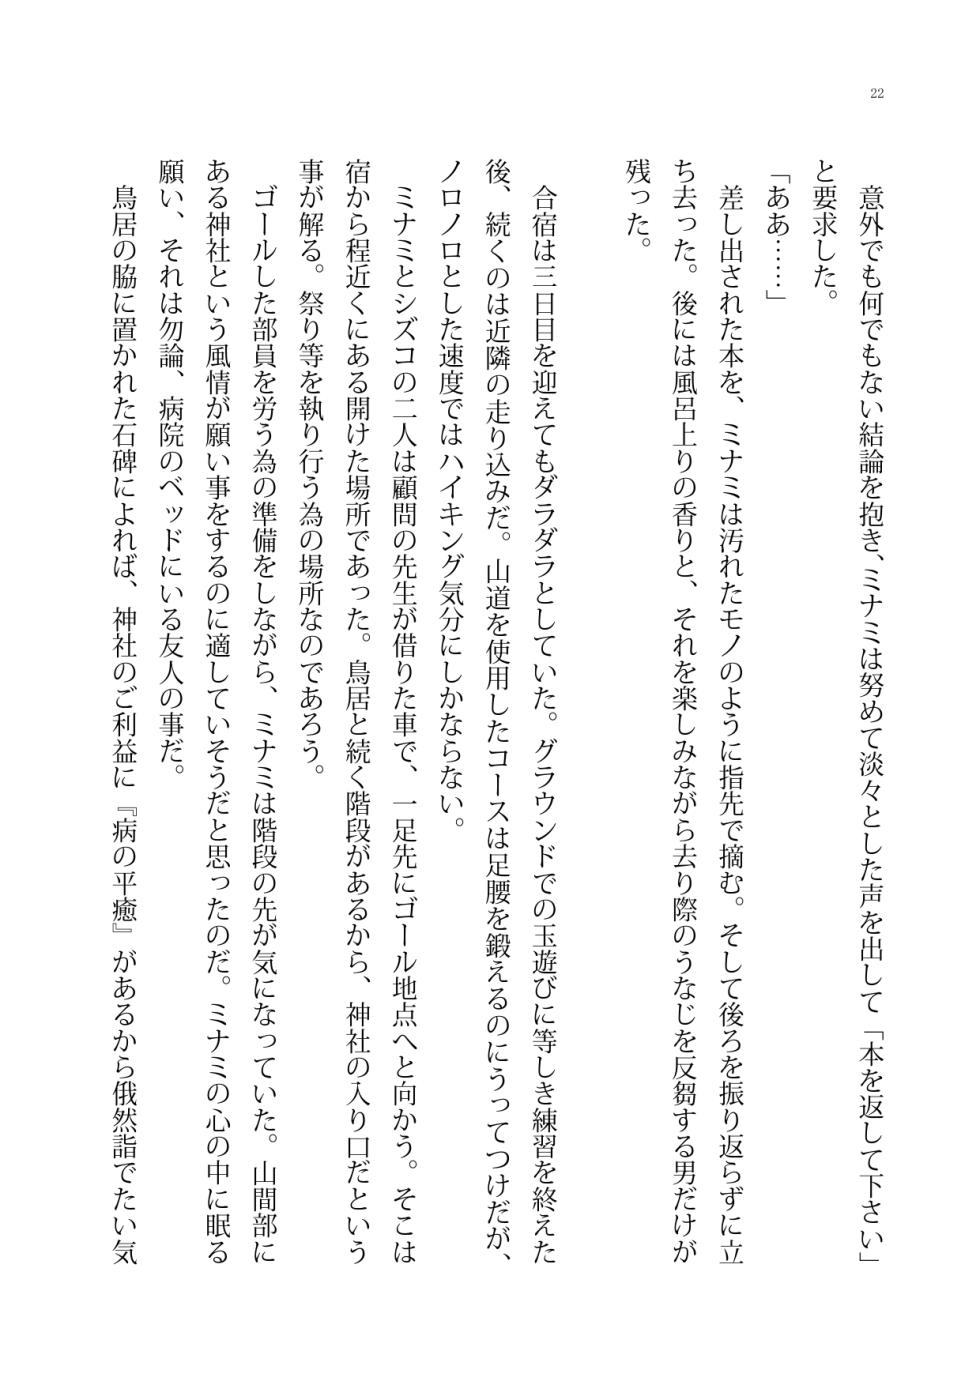 22
　意外でも何でもない結論を抱き、ミナミは努めて淡々とした声を出して「本を返して下さい」
と要求した。
「ああ……」
　差し出された本を、ミナミは汚れたモノのように指先で摘む。そして後ろを振り返らずに立
ち去った。後には風呂上りの香りと、それを楽しみながら去り際のうなじを反芻する男だけが
残った。
　合宿は三日目を迎えてもダラダラとしていた。グラウンドでの玉遊びに等しき練習を終えた
後、続くのは近隣の走り込みだ。山道を使用したコースは足腰を鍛えるのにうってつけだが、
ノロノロとした速度ではハイキング気分にしかならない。
　ミナミとシズコの二人は顧問の先生が借りた車で、一足先にゴール地点へと向かう。そこは
宿から程近くにある開けた場所であった。鳥居と続く階段があるから、神社の入り口だという
事が解る。祭り等を執り行う為の場所なのであろう。
　ゴールした部員を労う為の準備をしながら、ミナミは階段の先が気になっていた。山間部に
ある神社という風情が願い事をするのに適していそうだと思ったのだ。ミナミの心の中に眠る
願い、それは勿論、病院のベッドにいる友人の事だ。
　鳥居の脇に置かれた石碑によれば、神社のご利益に『病の平癒』があるから俄然詣でたい気